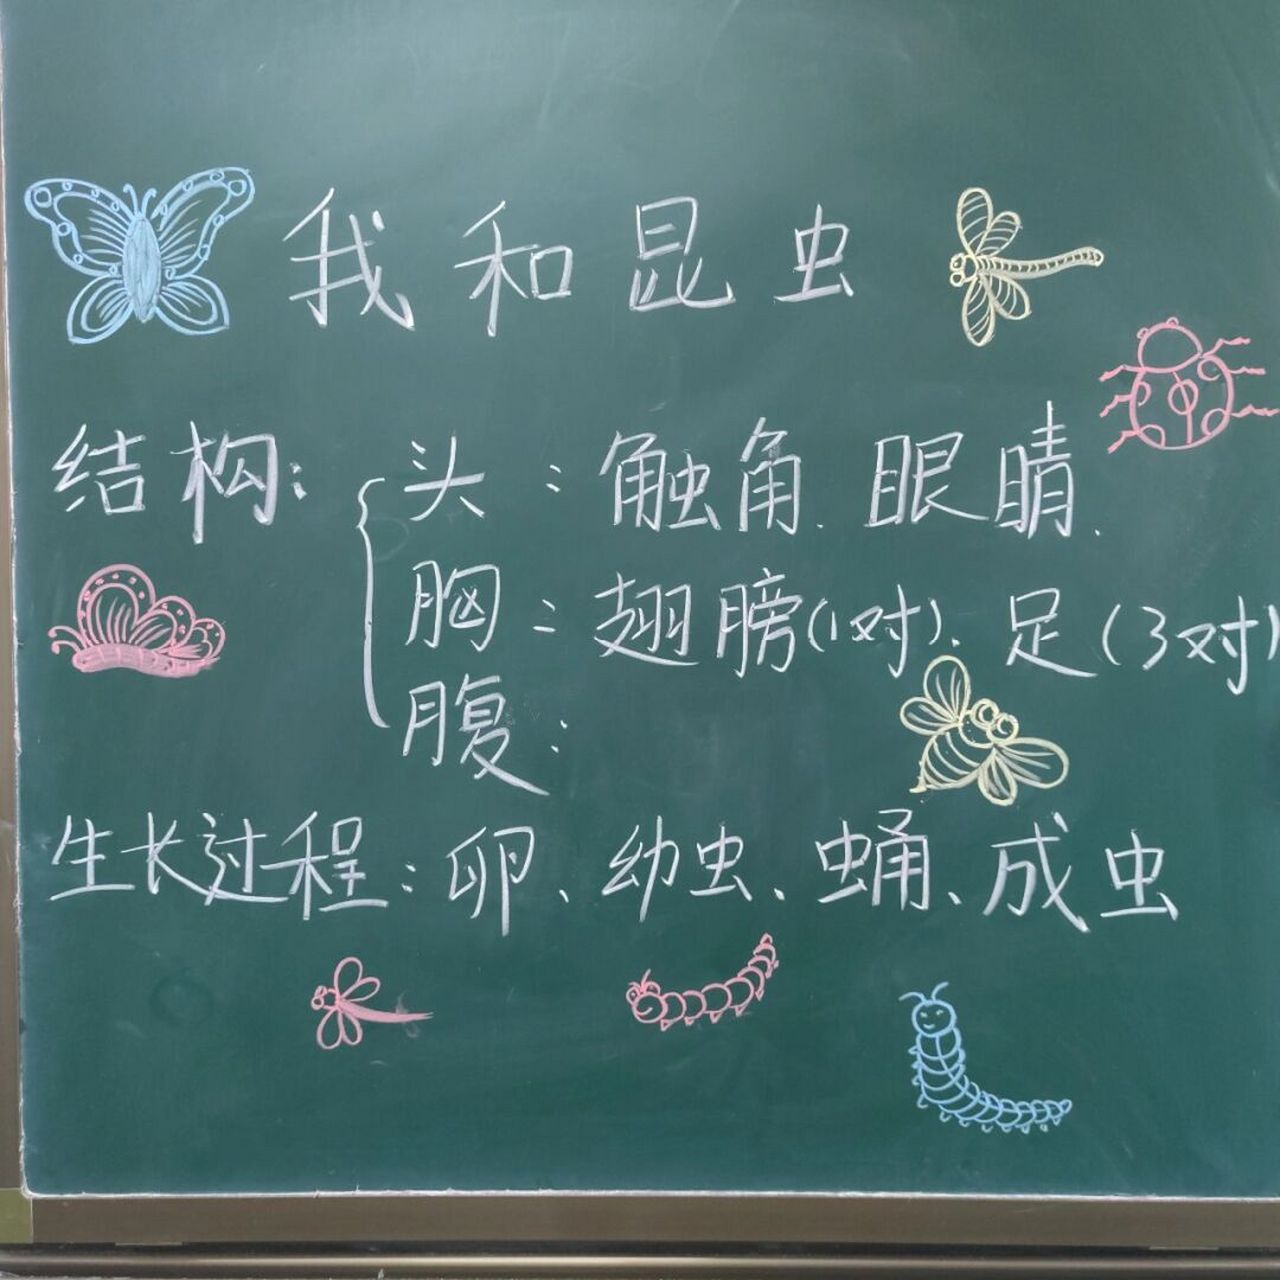 我和昆虫
结构：
头：触角、眼睛、
胸：翅膀(1对)、足(3对)
腹：
生长过程：卵、幼虫、蛹、成虫